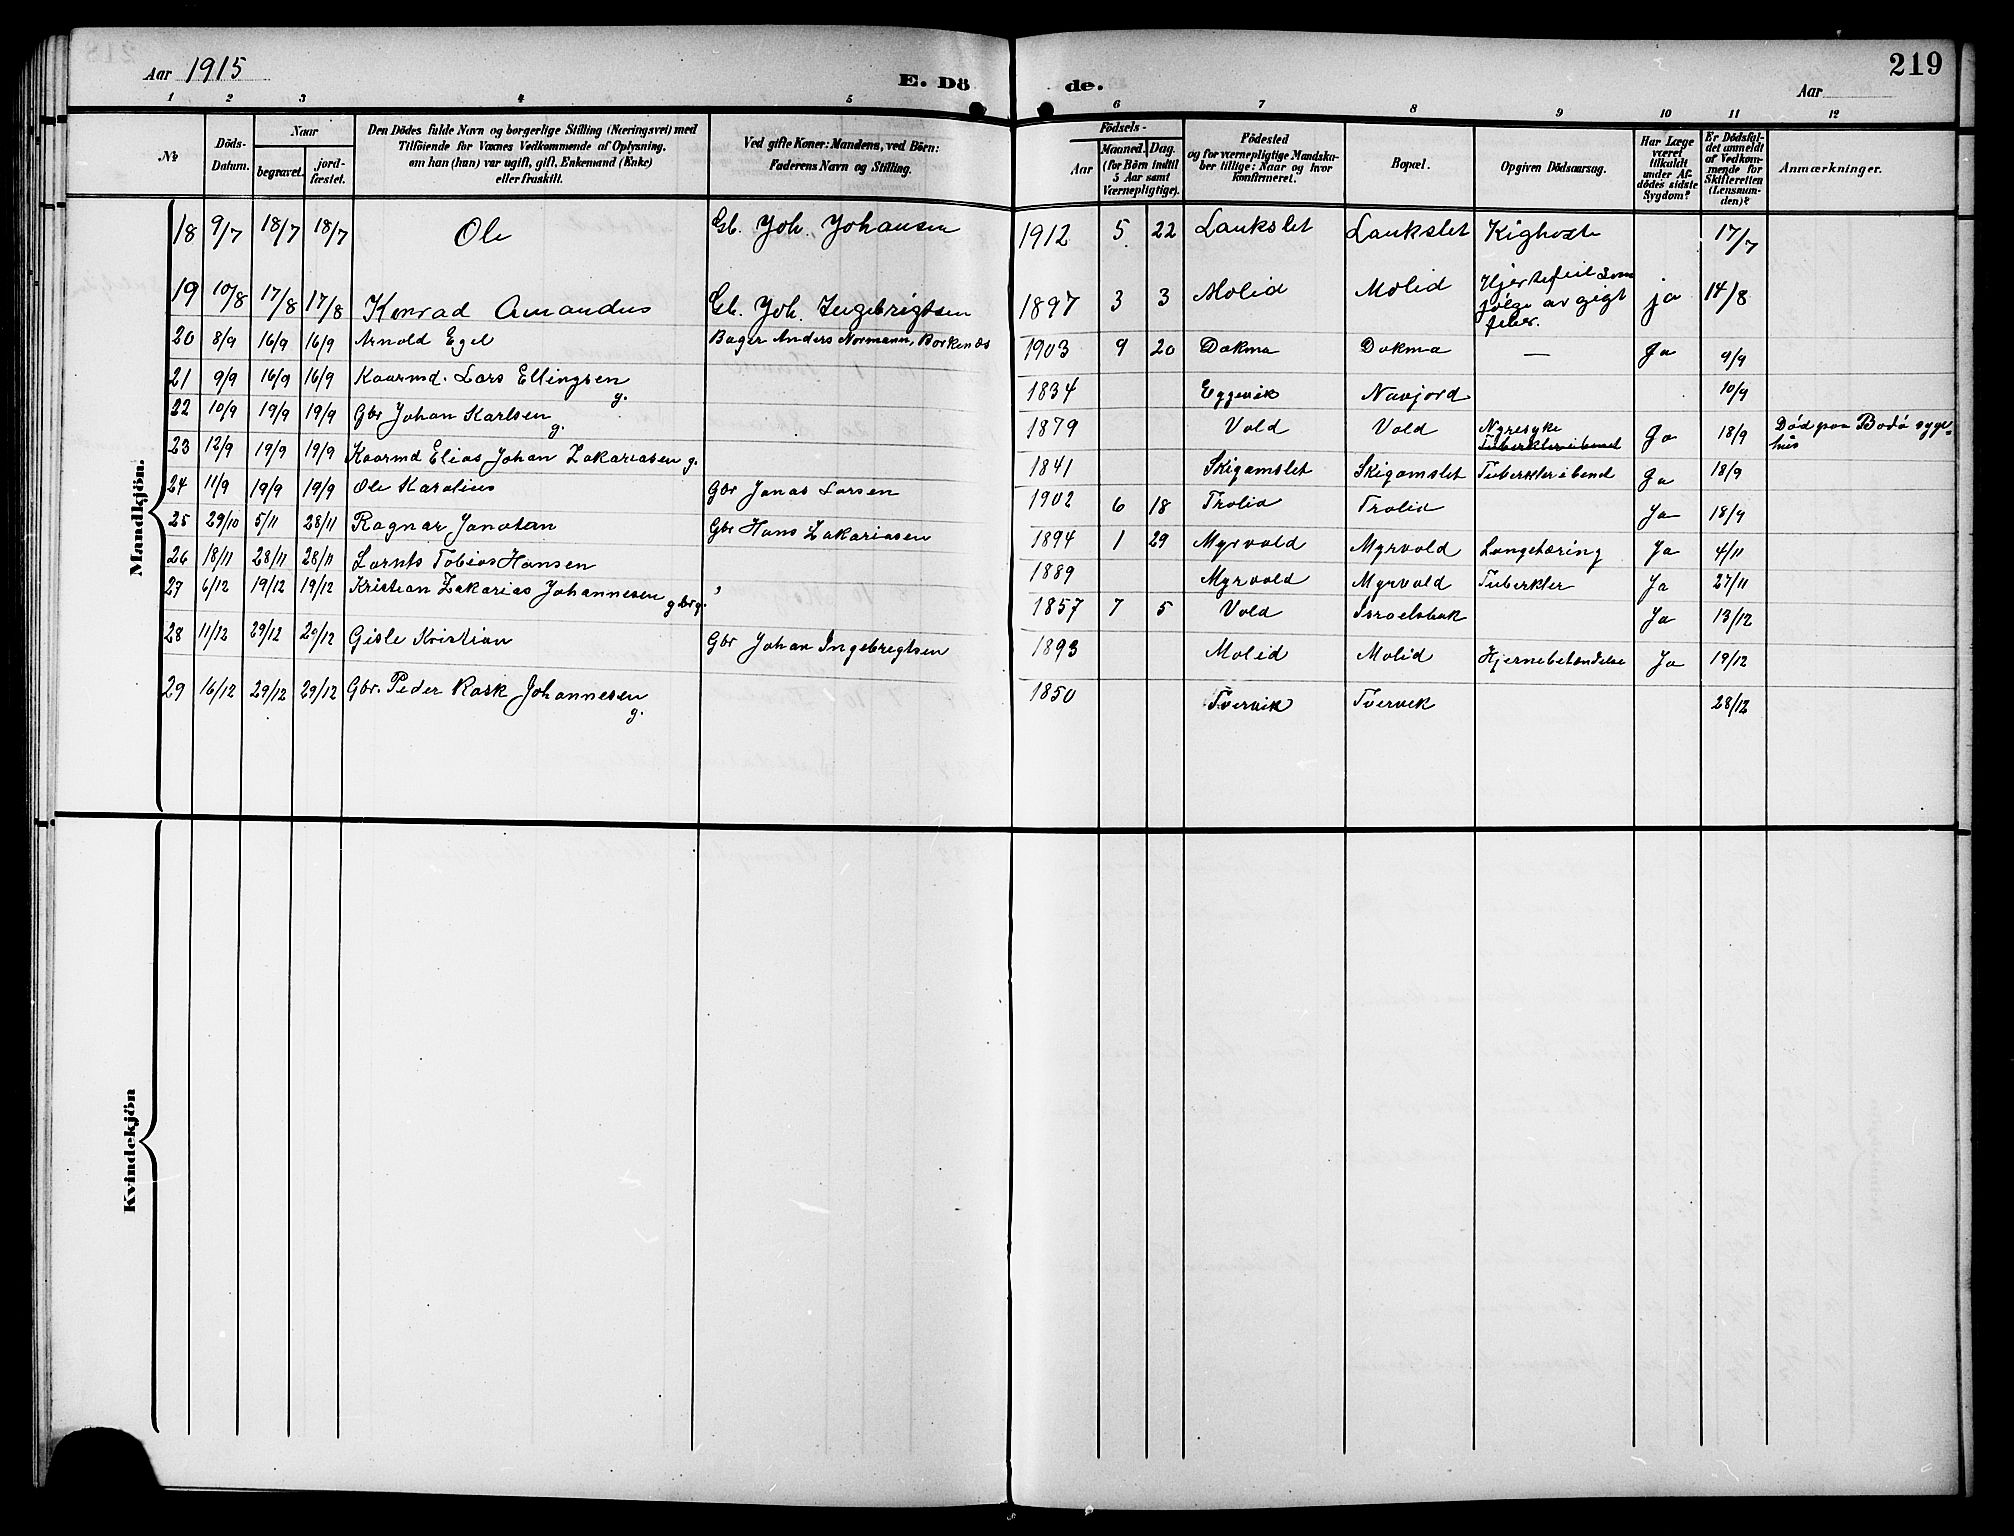 Aar 1915
E. Dö de.
219
Aar
1 2 3 4 5 6 7 8 9 10 11 12
№
Döds-Datum.
Naar
begravet.
jord-fæstet.
Den Dödes fulde Navn og borgerlige Stilling (Næringsvei) med
Tilföiende for Voxnes Vedkommende af Oplysning,
om han (hun) var ugift, gift, Enkemand (Enke)
eller fraskilt.
Ved gifte Koner: Mandens, ved Börn:
Faderens Navn og Stilling.
Födsels-
Aar
Maaned. Dag.
(for Börn indtil
5 Aar samt
Værnepligtige).
Födested
og for værnepligtige Mandska-
ber tillige: Naar og hvor
konfirmeret.
Bopæl.
Opgiven Dödsaarsag.
Har Læge
været
tilkaldt
under Af-
dödes sidste
Sygdom?
Er Dödsfal-
det anmeldt
af Vedkom-
mende for
Skifteretten
(Lensman-
den)?
Anmærkninger.
Mandkjön.
18 9/7 18/7 18/7 Ole Gb. Joh. Johansen 1912 5 22 Laukslet Laukslet Kighoste 17/7
19 10/8 17/8 17/8 Konrad Amandus Gb. Joh. Ingebrigtsen 1897 3 3 Molid Molid Hjertefeil som
fölge av gigt
feber. ja 14/8
20 8/9 16/9 16/9 Arnold Egel Bager Anders Normann, Borkenæs 1903 9 20 Dokmo Dokmo — Ja 9/9
21 9/9 16/9 16/9 Kaarmd. Lars Ellingsen g. 1834 Eggevik Navjord 10/9
22 10/9 19/9 19/9 Gbr Johan Karlsen g. 1879 Vold Vold Nyresyke Ja 18/9 Död paa Bodö syge-
hus
23 12/9 19/9 19/9 Kaarmd Elias Johan Zakariasen g. 1841 Skigamslet Skigamslet Tuberkler i bend Ja 18/9
24 11/9 19/9 19/9 Ole Karolius Gbr Jonas Larsen 1902 6 18 Trolid Trolid Ja 18/9
25 29/10 5/11 28/11 Ragnar Jonatan Gbr Hans Zakariasen 1894 1 29 Myrvold Myrvold Lungetæring Ja 4/11
26 18/11 28/11 28/11 Lornts Tobias Hansen 1889 Myrvold Myrvold Tuberkler Ja 27/11
27 6/12 19/12 19/12 Kristian Zakarias Johannesen gbr g. 1857 7 5 Vold Israelsbak Ja 13/12
28 11/12 29/12 29/12 Gisle Kristian Gbr Johan Ingebregtsen 1893 Molid Molid Hjernebetendelse Ja 19/12
29 16/12 29/12 29/12 Gbr. Peder Rask Johannesen g. 1850 Tvervik Tvervik 28/12
Kvindekjön